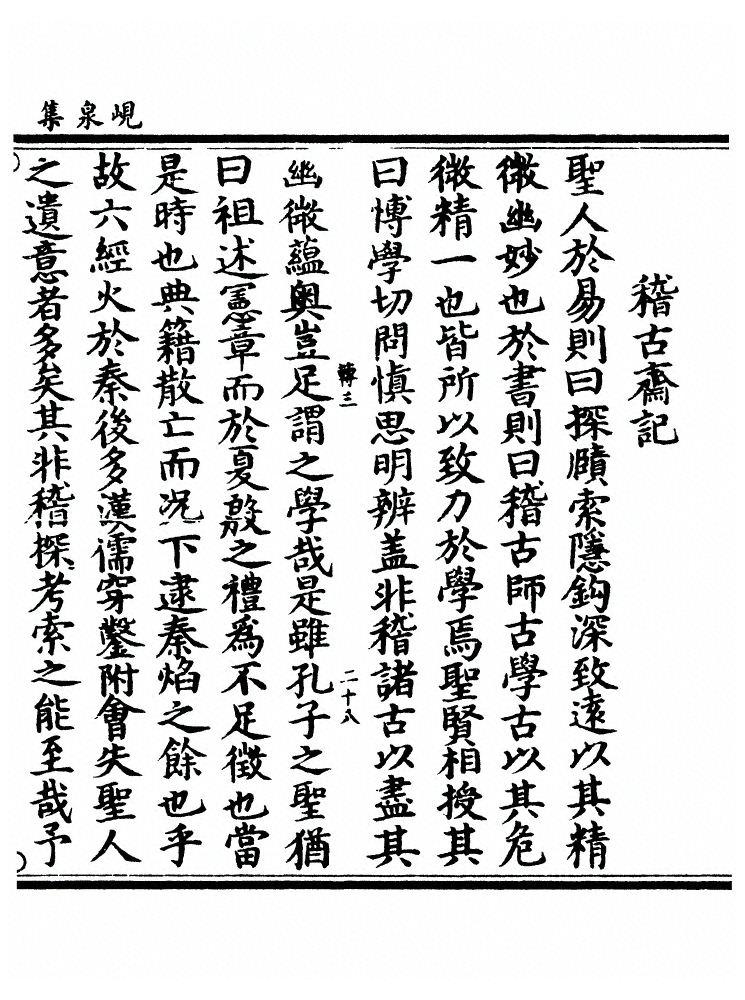 峴泉集
稽古齋記
聖人於易則曰探賾索隱鈎深致遠以其精
微幽妙也於書則曰稽古師古學古以其危
微精一也皆所以致力於學焉聖賢相授其
曰博學切問慎思明辨蓋非稽諸古以盡其
轉三
二十八
幽微蘊奧豈足謂之學哉是雖孔子之聖猶
曰祖述憲章而於夏殷之禮為不足徵也當
是時也典籍散亡而况下逮秦焰之餘也乎
故六經火於秦後多漢儒穿鑿附會失聖人
之遺意者多矣其非稽探考索之能至哉予